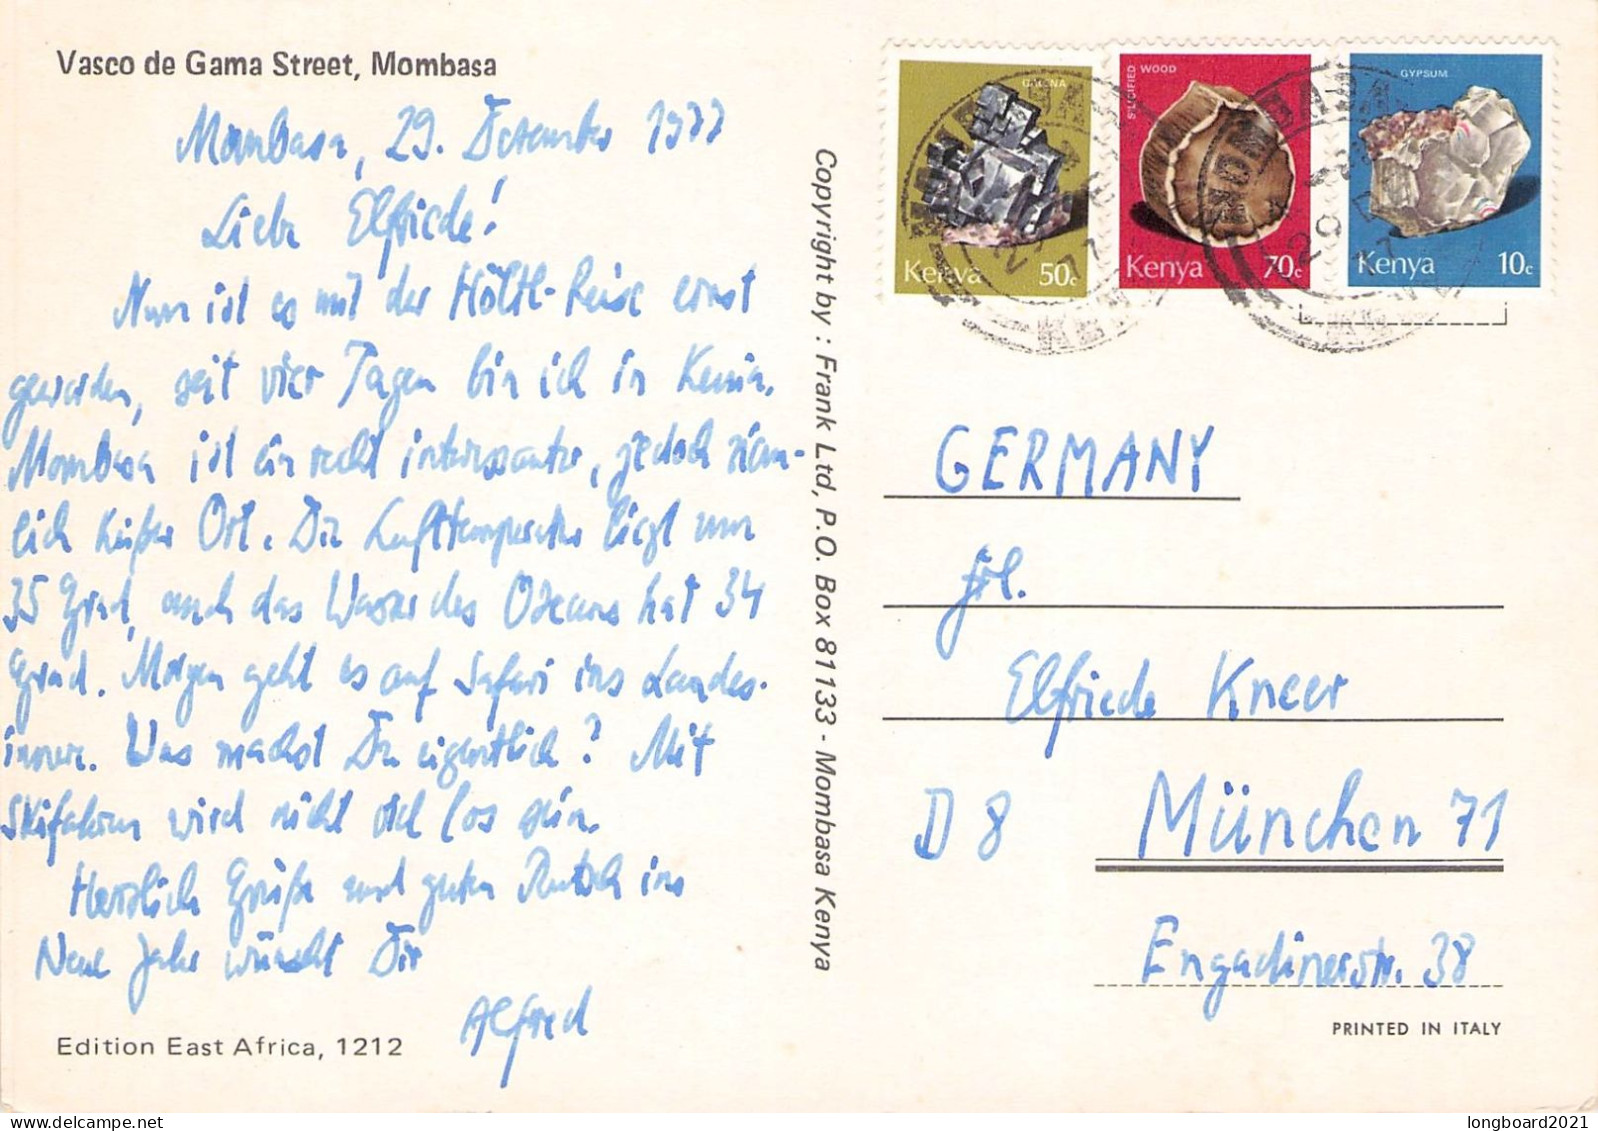 Vasco de Gama Street, Mombasa
Mombasa, 29. Dezember 1977
Liebe Elfriede!
Nun ist es mit der Höltl-Reise ernst
geworden, seit vier Tagen bin ich in Kenia.
Mombasa ist ein recht interessanter, jedoch ziem-
lich heißer Ort. Die Lufttemperatur liegt um
35 Grad, auch das Wasser des Ozeans hat 34
Grad. Morgen geht es auf Safari ins Landes-
innere. Was machst Du eigentlich? Mit
Skifahren wird nicht viel los sein.
Herzlich Grüße und guten Rutsch ins
Neue Jahr wünscht Dir
Alfred
Edition East Africa, 1212
Copyright by : Frank Ltd, P.O. Box 81133 - Mombasa Kenya
GALENA
Kenya 50c
SILICIFIED WOOD
Kenya 70c
GYPSUM
Kenya 10c
MOMBASA
KENYA
GERMANY
Frl.
Elfriede Kneer
D 8 München 71
Engadinerstr. 38
PRINTED IN ITALY
longboard2021